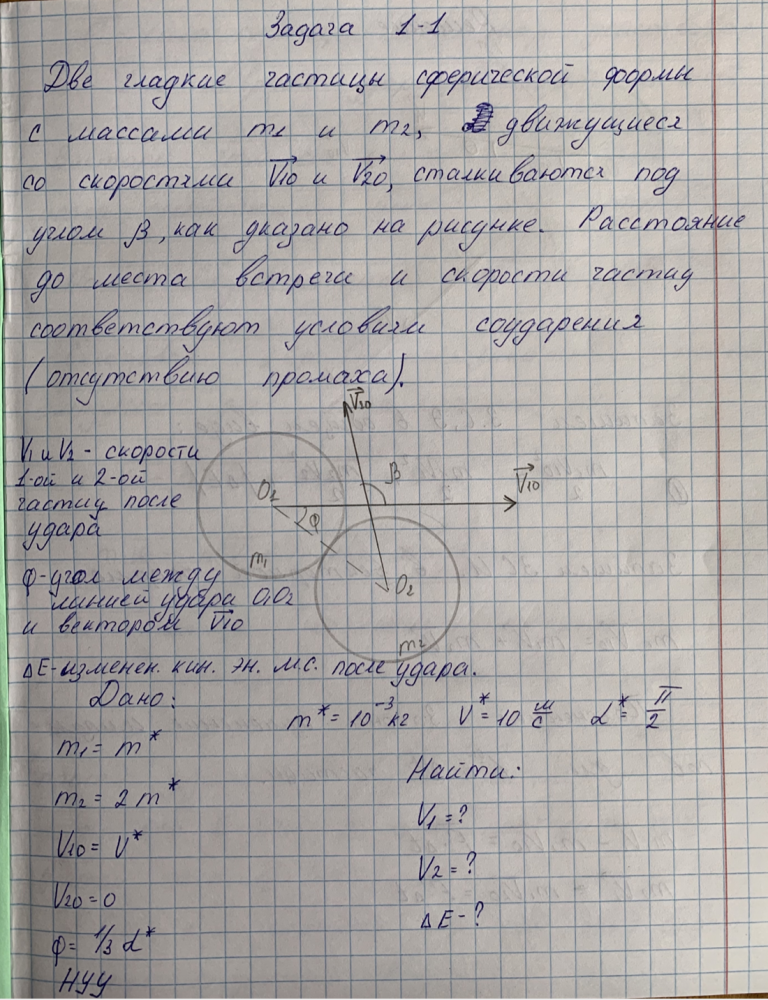 Задача 1-1
Две гладкие частицы сферической формы
с массами m1 и m2, движущиеся
со скоростями V10 и V20, сталкиваются под
углом β, как указано на рисунке. Расстояние
до места встречи и скорости частиц
соответствуют условиям соударения
(отсутствию промаха).
V20
V1 и V2 - скорости
1-ой и 2-ой
частиц после
удара
O1
β
V10
φ
m1
O2
m2
φ-угол между
линией удара O1O2
и вектором V10
ΔE-изменен. кин. эн. м.с. после удара.
Дано:
m* = 10⁻³ кг V* = 10 м/с α* = π/2
m1 = m*
Найти:
m2 = 2 m*
V1 = ?
V10 = V*
V2 = ?
V20 = 0
ΔE - ?
φ = 1/3 α*
НУУ